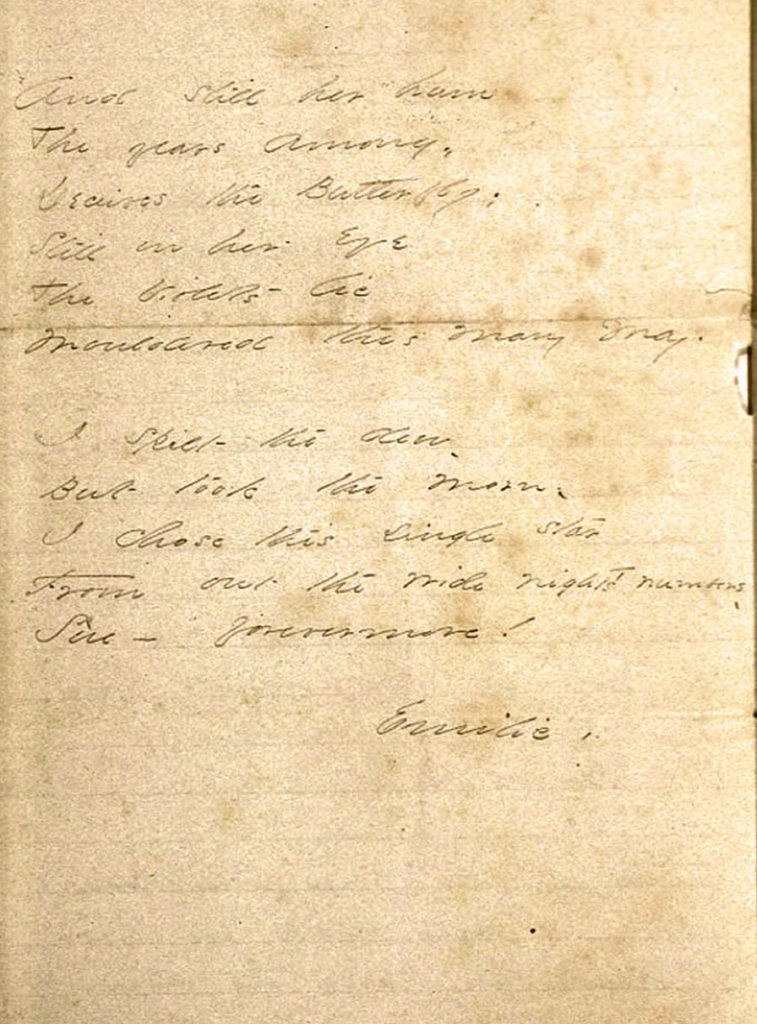 And still her hum
The years among,
Deceives the Butterfly;
Still in her Eye
The Violets lie
Mouldered this many May.
I spilt the dew,
But took the morn,
I chose this single star
From out the wide night's numbers,
Sue - forevermore!
Emilie.